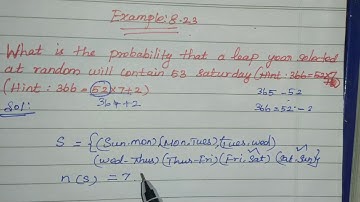 Example: 8.23
What is the probability that a leap year selected
at random will contain 53 saturday (Hint: 366 = 52×7
(Hint: 366 = 52×7+2)
364+2
365 - 52
366 = 52 - 2
Sol:
S = {(Sun.mon)(Mon.Tues)(Tues.wed)
(wed-Thus)(Thur-Fri)(Fri.Sat)(Sat.Sun)}
n(s) = 7